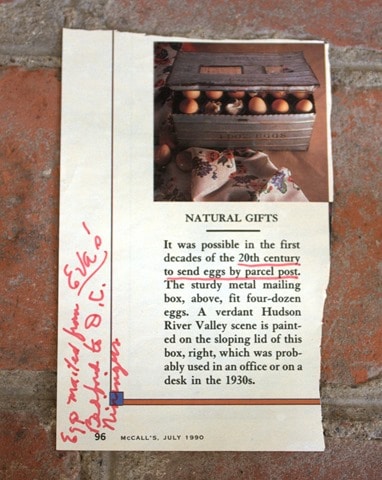 NATURAL GIFTS
It was possible in the first
decades of the 20th century
to send eggs by parcel post.
The sturdy metal mailing
box, above, fit four-dozen
eggs. A verdant Hudson
River Valley scene is paint-
ed on the sloping lid of this
box, right, which was prob-
ably used in an office or on a
desk in the 1930s.
mailed from
Bedford to D.C.
Nininger
96 McCALL'S, JULY 1990